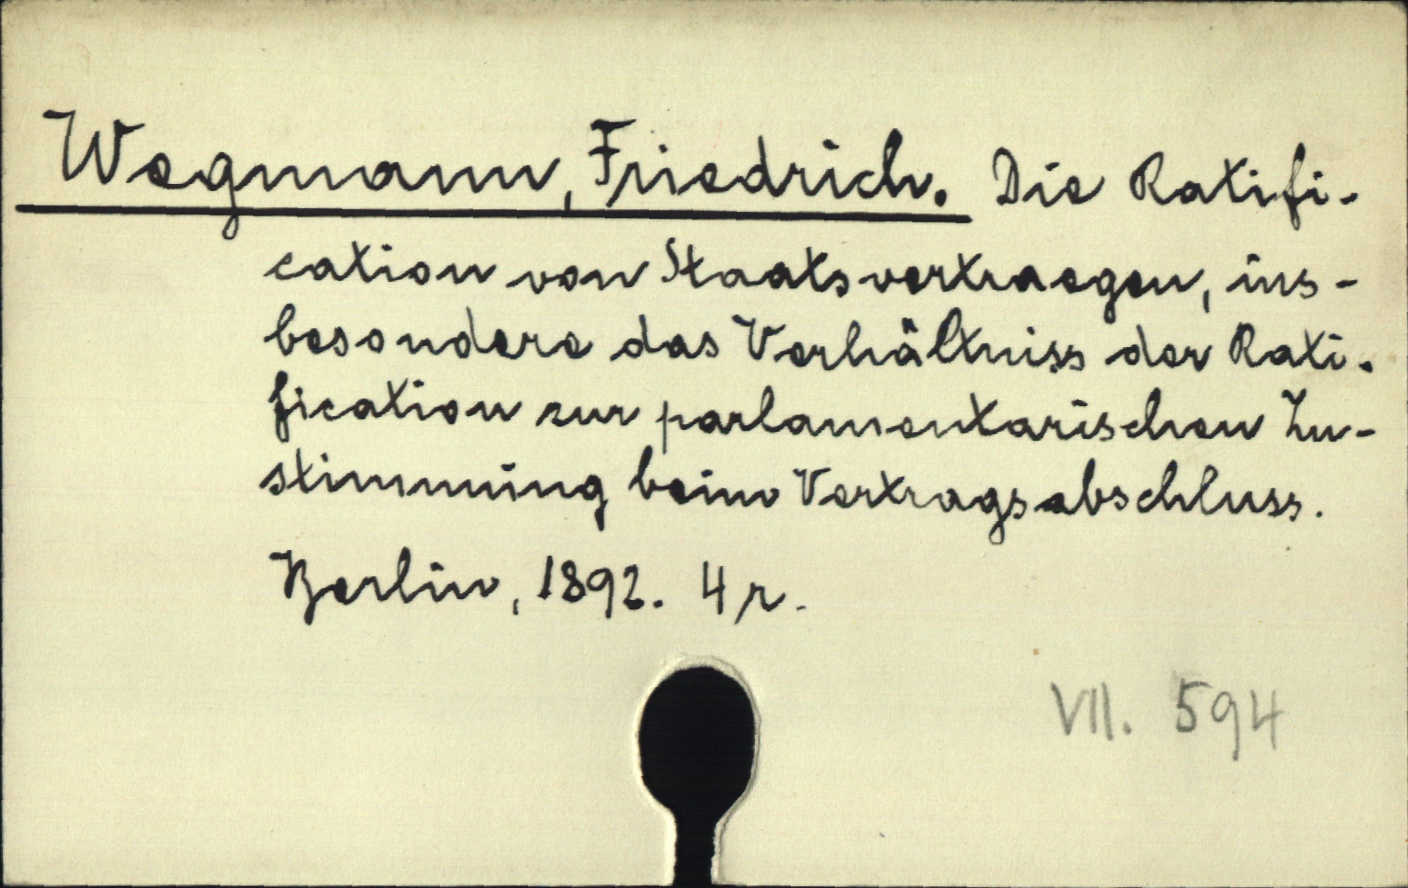 Wegmann, Friedrich. Die Ratifi-
cation von Staatsvertraegen, ins-
besondere das Verhältniss der Rati-
fication zur parlamentarischen Zu-
stimmung beim Vertragsabschluss.
Berlin, 1892. 4r.
VII. 594